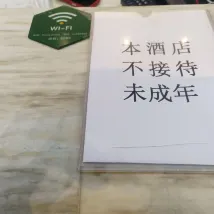 WI-FI
本酒店
不接待
未成年